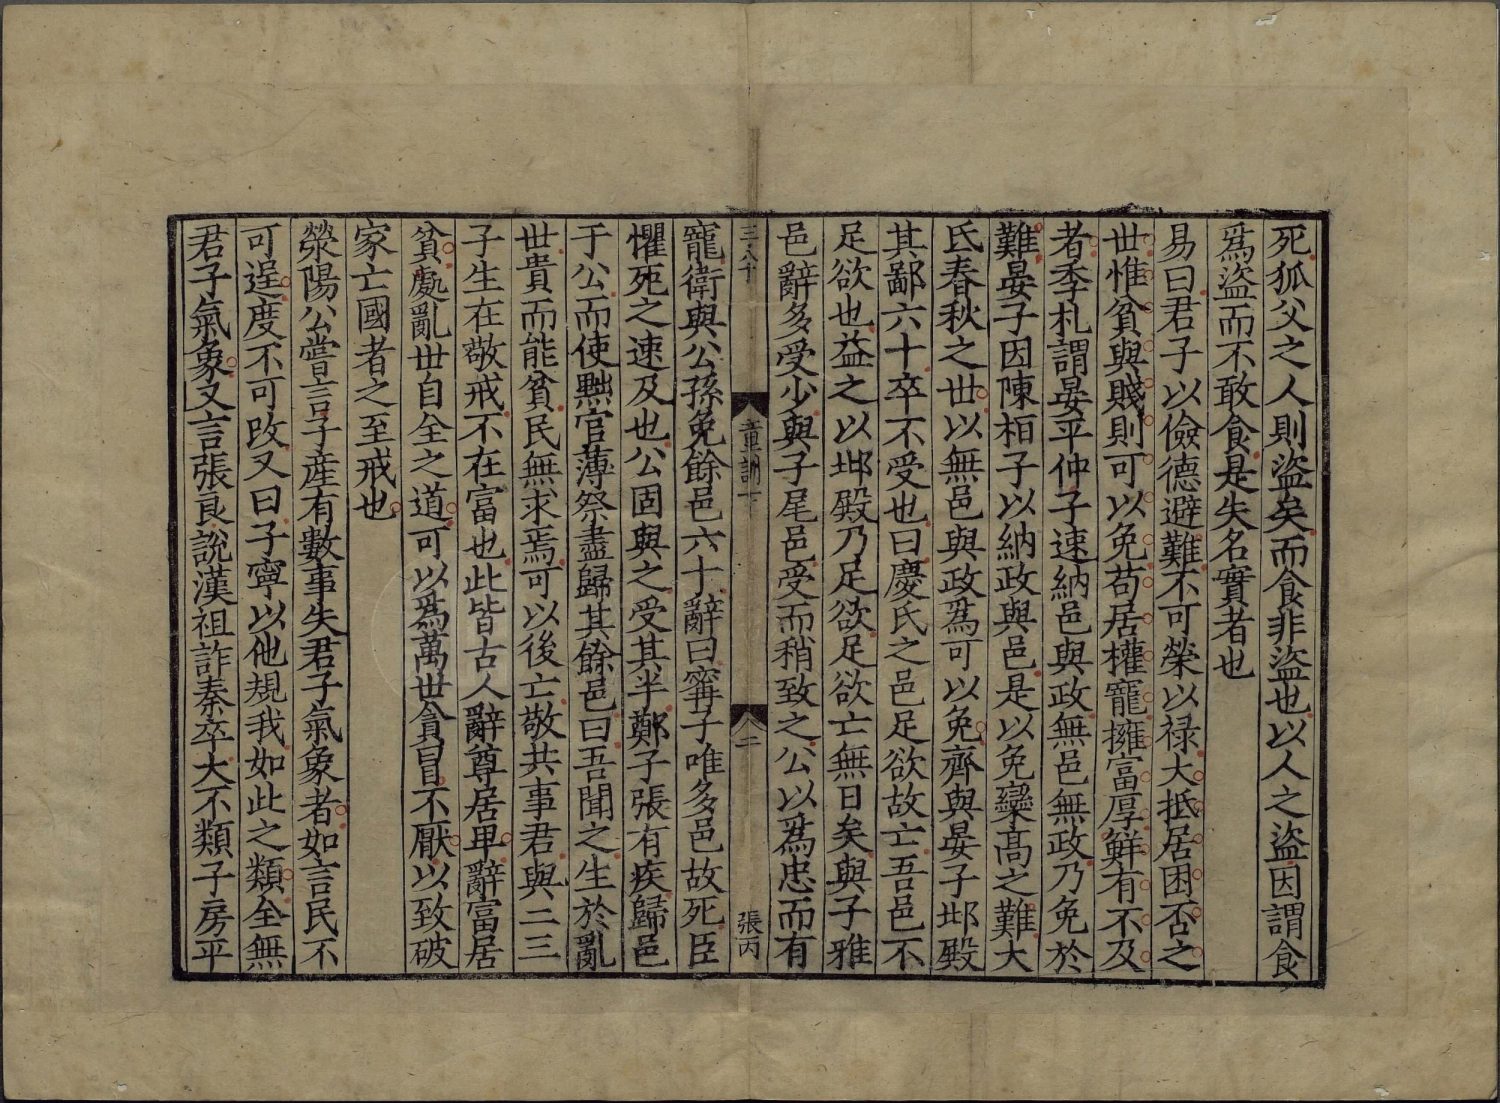 死狐父之人則盜矣而食非盜也以人之盜因謂食
爲盜而不敢食是失名實者也
易曰君子以儉德避難不可榮以禄大抵居困否之
世惟貧與賤則可以免苟居權寵擁富厚鮮有不及
者季札謂晏平仲子速納邑與政無邑無政乃免於
難晏子因陳桓子以納政與邑是以免欒髙之難大
氐春秋之世以無邑與政爲可以免齊與晏子邶殿
其鄙六十卒不受也曰慶氏之邑足欲故亡吾邑不
足欲也益之以邶殿乃足欲足欲亡無日矣與子雅
邑辭多受少與子尾邑受而稍致之公以爲忠而有
三八十
童訓下
二
張丙
寵衛與公孫免餘邑六十辭曰甯子唯多邑故死臣
懼死之速及也公固與之受其半鄭子張有疾歸邑
于公而使黜官薄祭盡歸其餘邑曰吾聞之生於亂
世貴而能貧民無求焉可以後亡敬共事君與二三
子生在敬戒不在富也此皆古人辭尊居卑辭富居
貧處亂世自全之道可以爲萬世貪冒不厭以致破
家亡國者之至戒也
滎陽公嘗言子産有數事失君子氣象者如言民不
可逞度不可改又曰子寧以他規我如此之類全無
君子氣象又言張良說漢祖詐秦卒大不類子房平